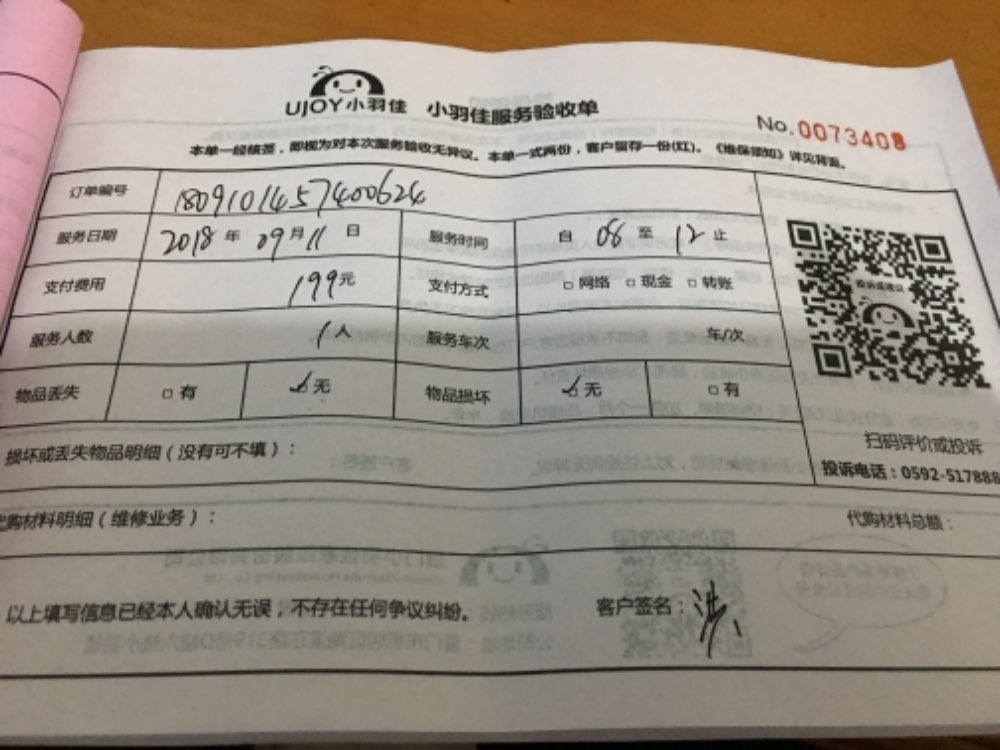 UJOY小羽佳 小羽佳服务验收单
No.0073408
本单一经核签，即视为对本次服务验收无异议。本单一式两份，客户留存一份(红)。《维保须知》详见背面。
订单编号 1809101457400624
服务日期 2018年09月11日 服务时间 自08至12止
支付费用 199元 支付方式 □网络 □现金 □转账
服务人数 1人 服务车次 车/次
物品丢失 □有 ☑无 物品损坏 ☑无 □有
损坏或丢失物品明细（没有可不填）：
扫码评价或投诉
投诉电话：0592-517888
代购材料明细（维修业务）： 代购材料总额：
以上填写信息已经本人确认无误，不存在任何争议纠纷。 客户签名：